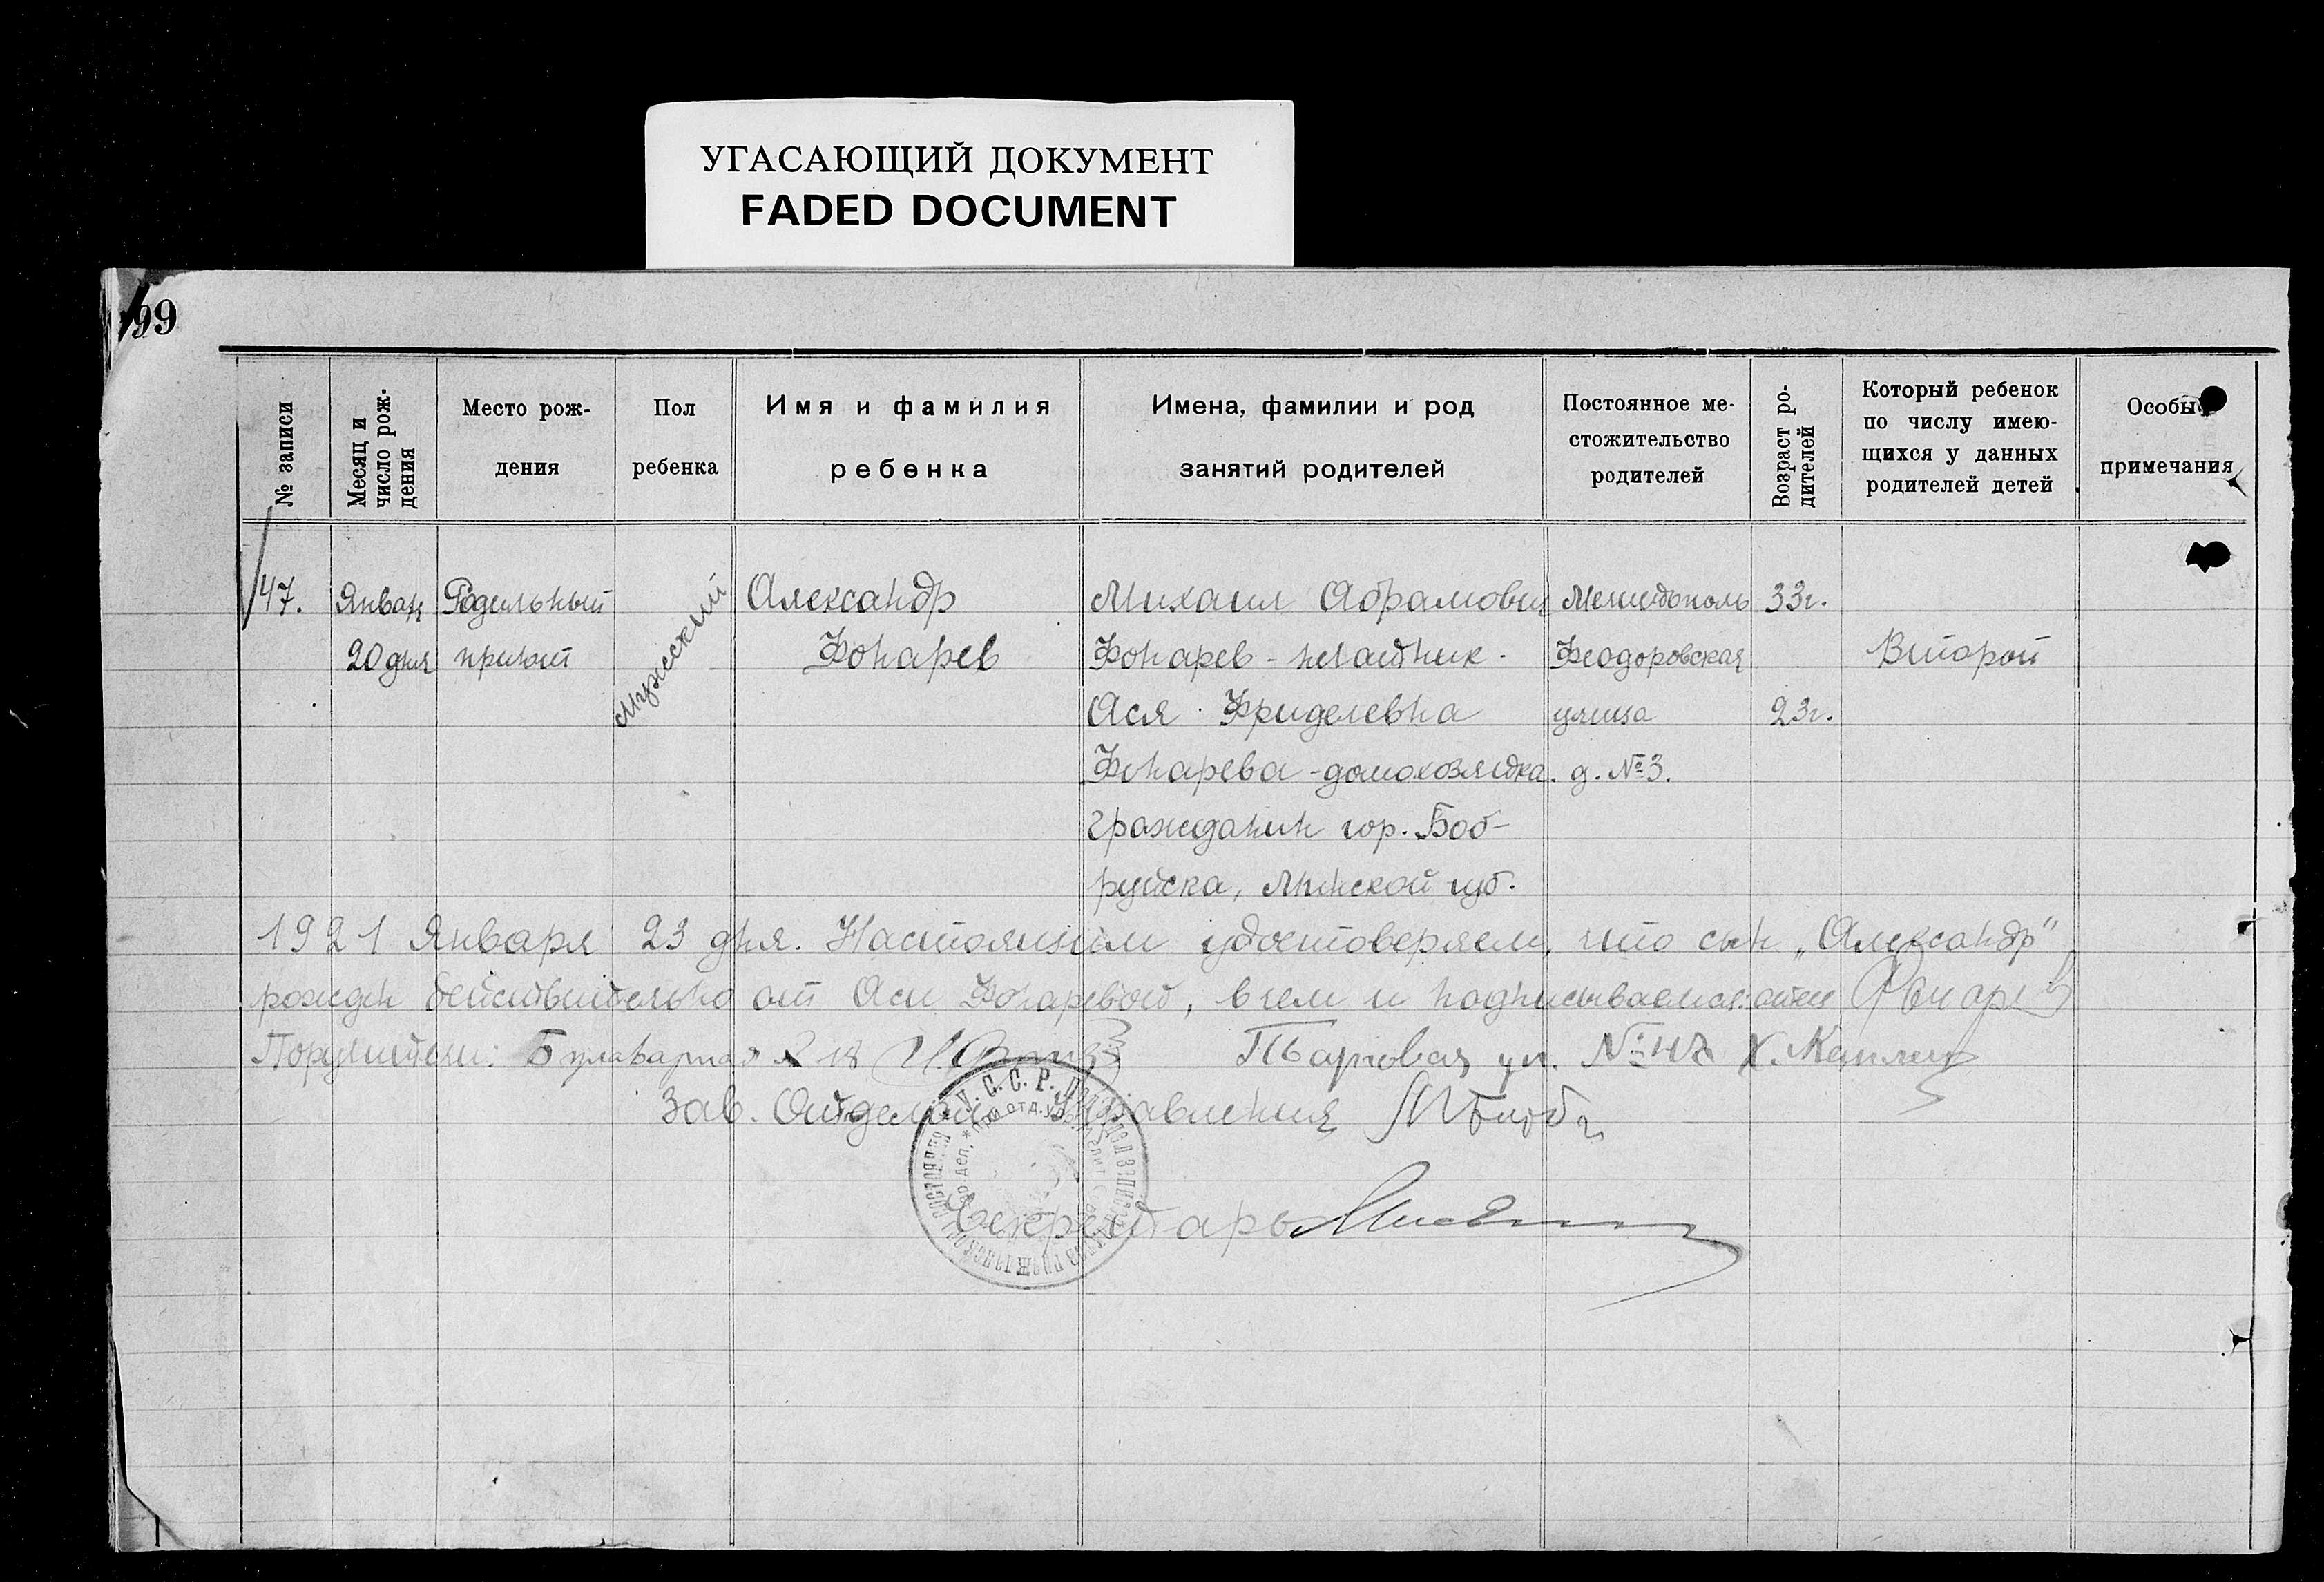 УГАСАЮЩИЙ ДОКУМЕНТ
FADED DOCUMENT
99
№ записи
Месяц и число рож-
дения
Место рож-
дения
Пол
ребенка
Имя и фамилия
ребенка
Имена, фамилии и род
занятий родителей
Постоянное ме-
стожительство
родителей
Возраст ро-
дителей
Который ребенок
по числу имею-
щихся у данных
родителей детей
Особые
примечания
47.
Январ
20 дня
Родильный
приют
мужеский
Александр
Фонарев
Михаил Абрамович
Фонарев -
Ася Фриделевна
Фонарева - домохозяйка.
гражданин гор. Боб-
руйска, Минской губ.
Мелитополь
Феодоровская
улица
д. №3.
33г.
23г.
Второй
1921 Января 23 дня. Настоящим удостоверяем, что сын „Александр"
рожден действительно от Аси Фонаревой, в чем и подписываемся: отец Фонарев
Поручители: Бульварная 18 Торговая ул. № 47 Х. Каплан
Зав. Отделом Управления
Секретарь
У.С.С.Р.